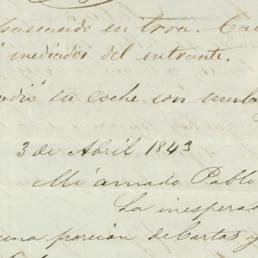 paseando en
mediados del entrante.
su coche con
3 de Abril 1843
Mi amado Pablo
La inespera
una porcion de Cartas y